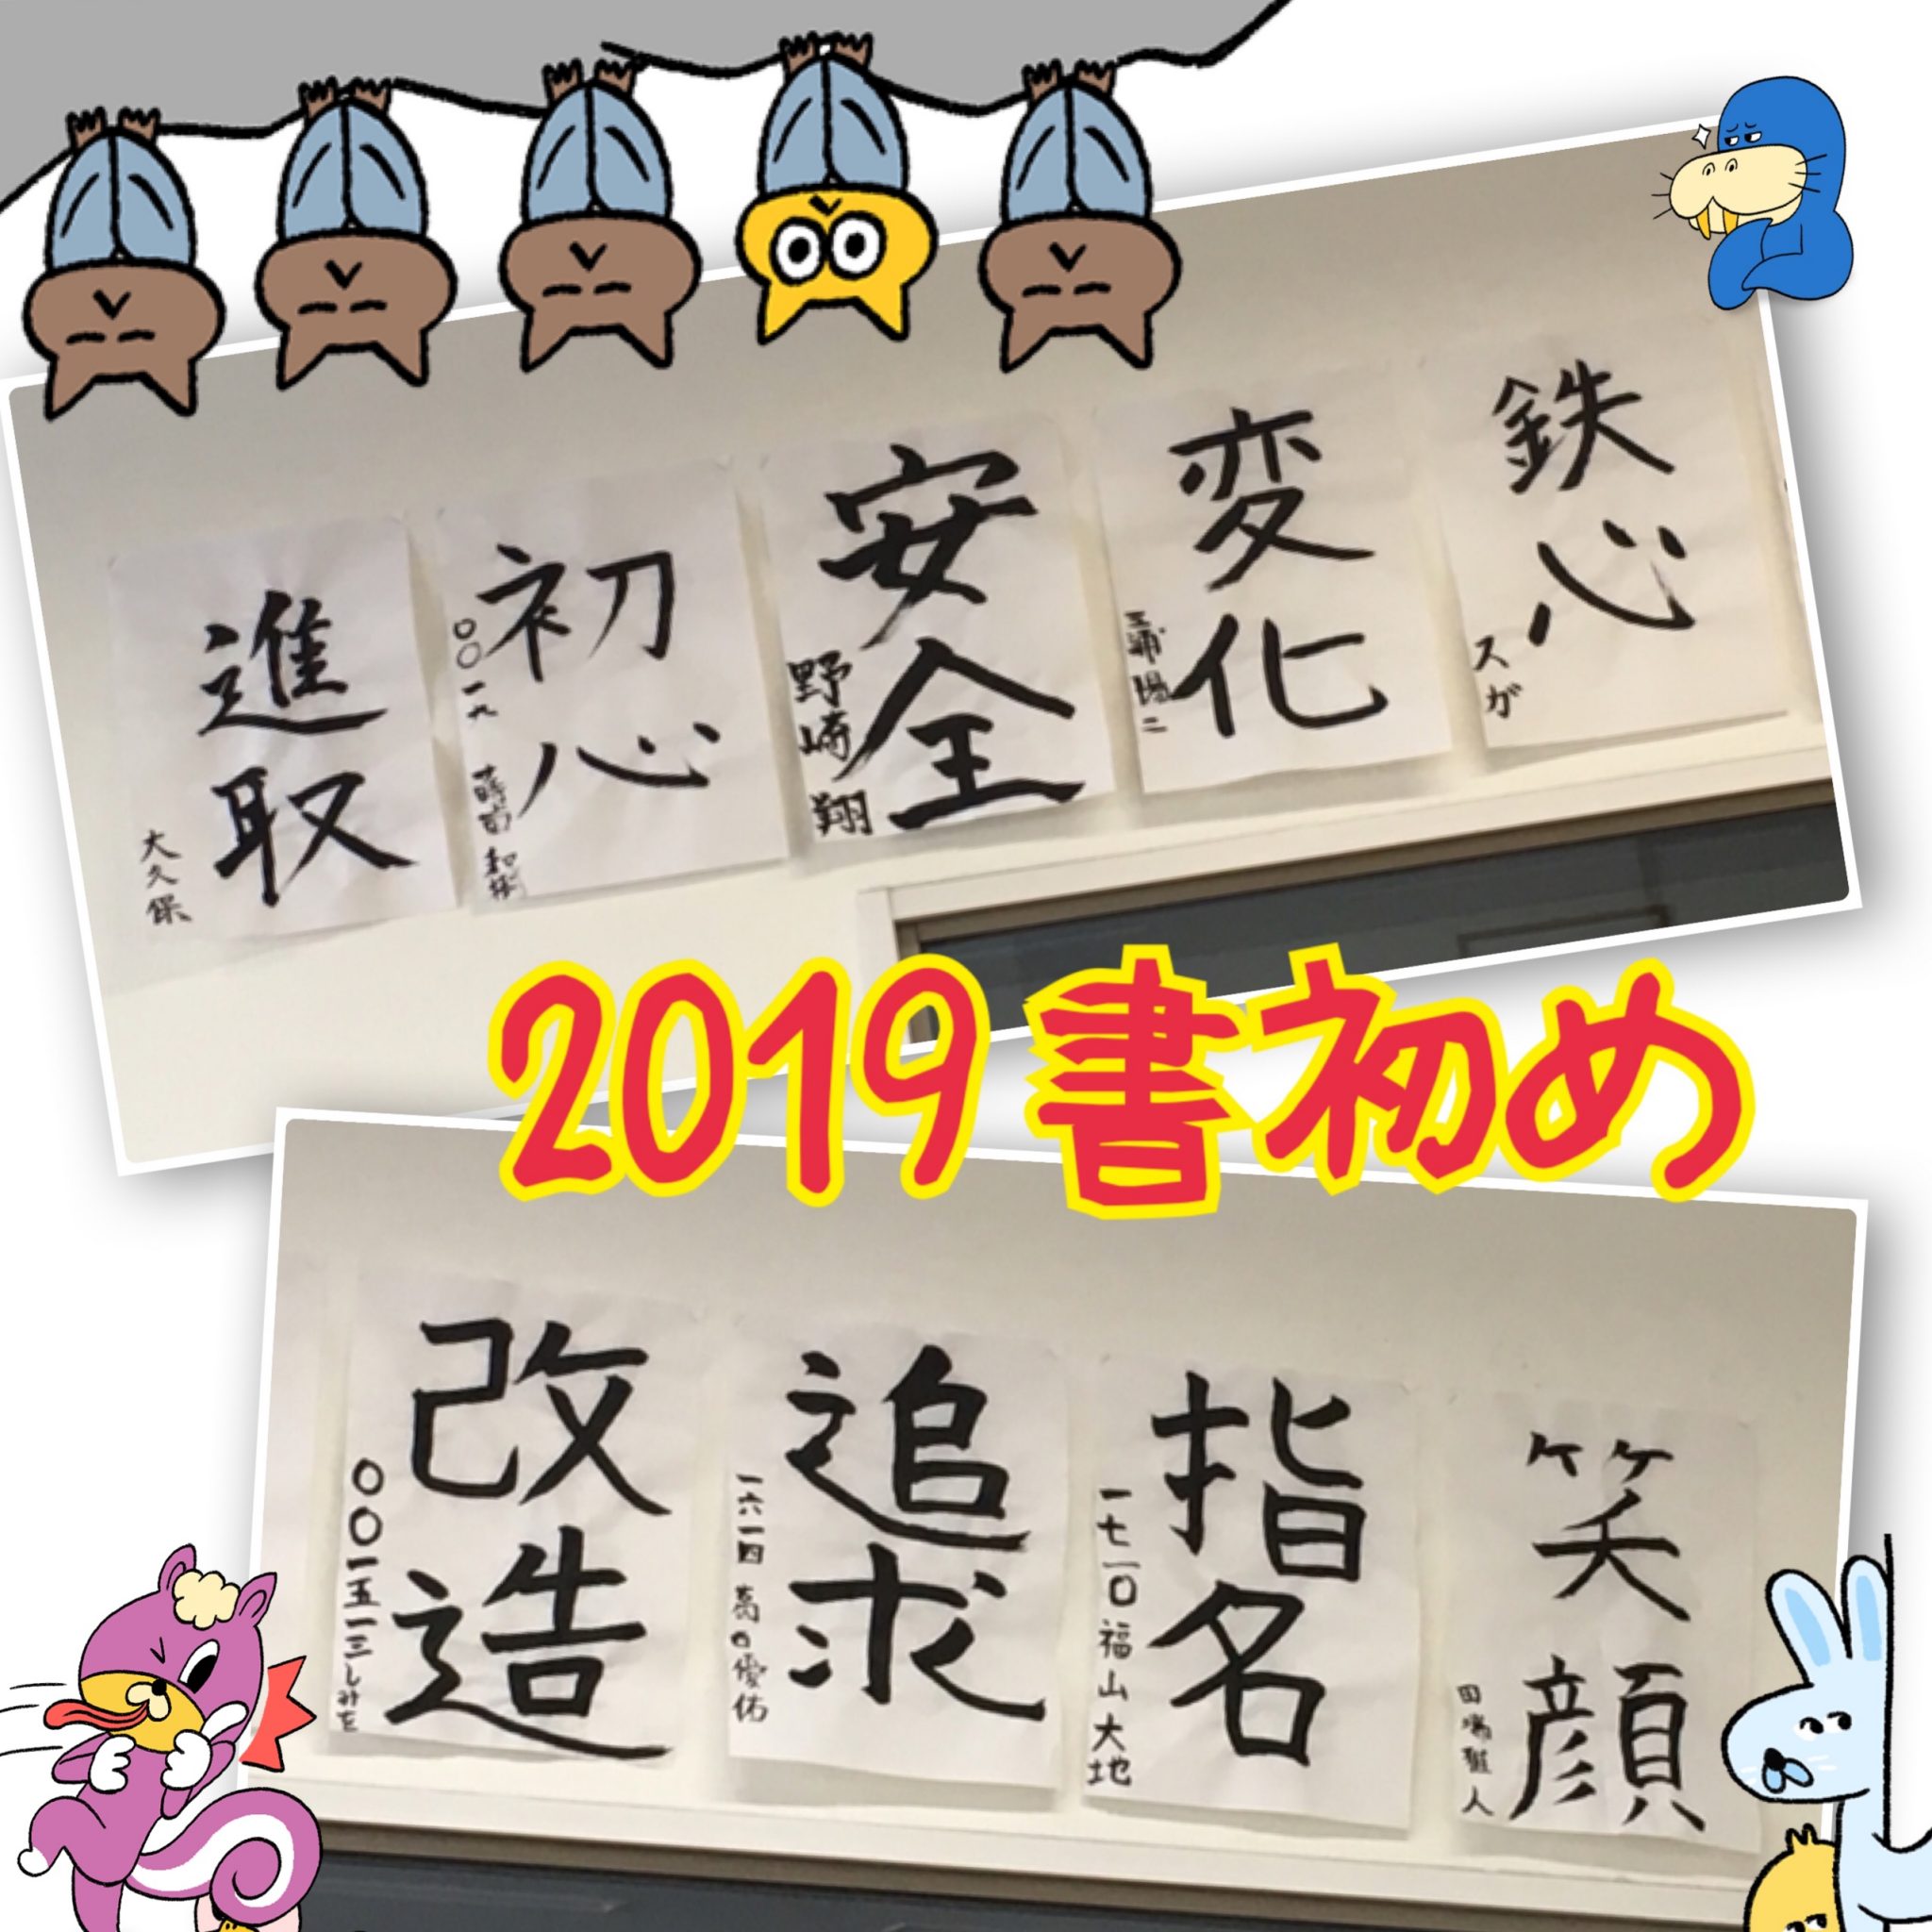 鉄心
スガ
変化
三浦陽二
安全
野崎 翔
初心
〇〇一九
進取
大久保
2019書初め
笑顔
田嶋雅人
指名
一七一〇福山大地
追求
一六一四
優佑
改造
〇〇一五一三しみを